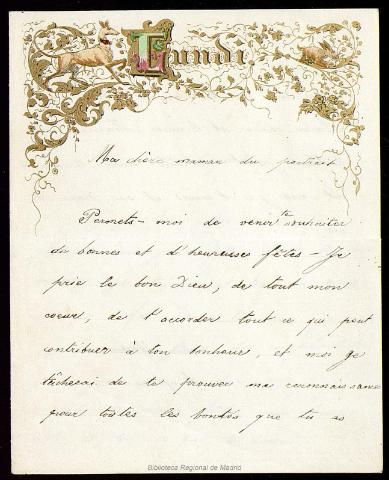 Lundi
Ma chère maman du portrait
Permets-moi de venir te souhaiter
de bonnes et d'heureuses fêtes - Je
prie le bon Dieu, de tout mon
coeur, de t'accorder tout ce qui peut
contribuer à ton bonheur, et moi je
tâcherai de te prouver ma reconnaissance
pour toutes les bontés que tu as
Biblioteca Regional de Madrid